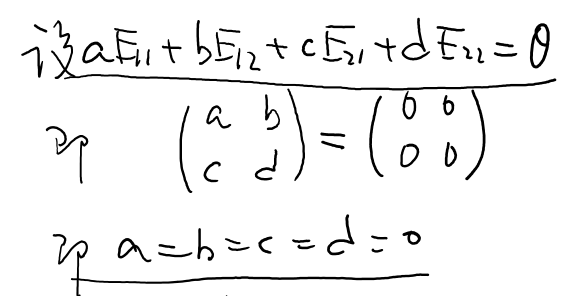 设 aE₁₁ + bE₁₂ + cE₂₁ + dE₂₂ = θ
即 (a b; c d) = (0 0; 0 0)
即 a = b = c = d = 0